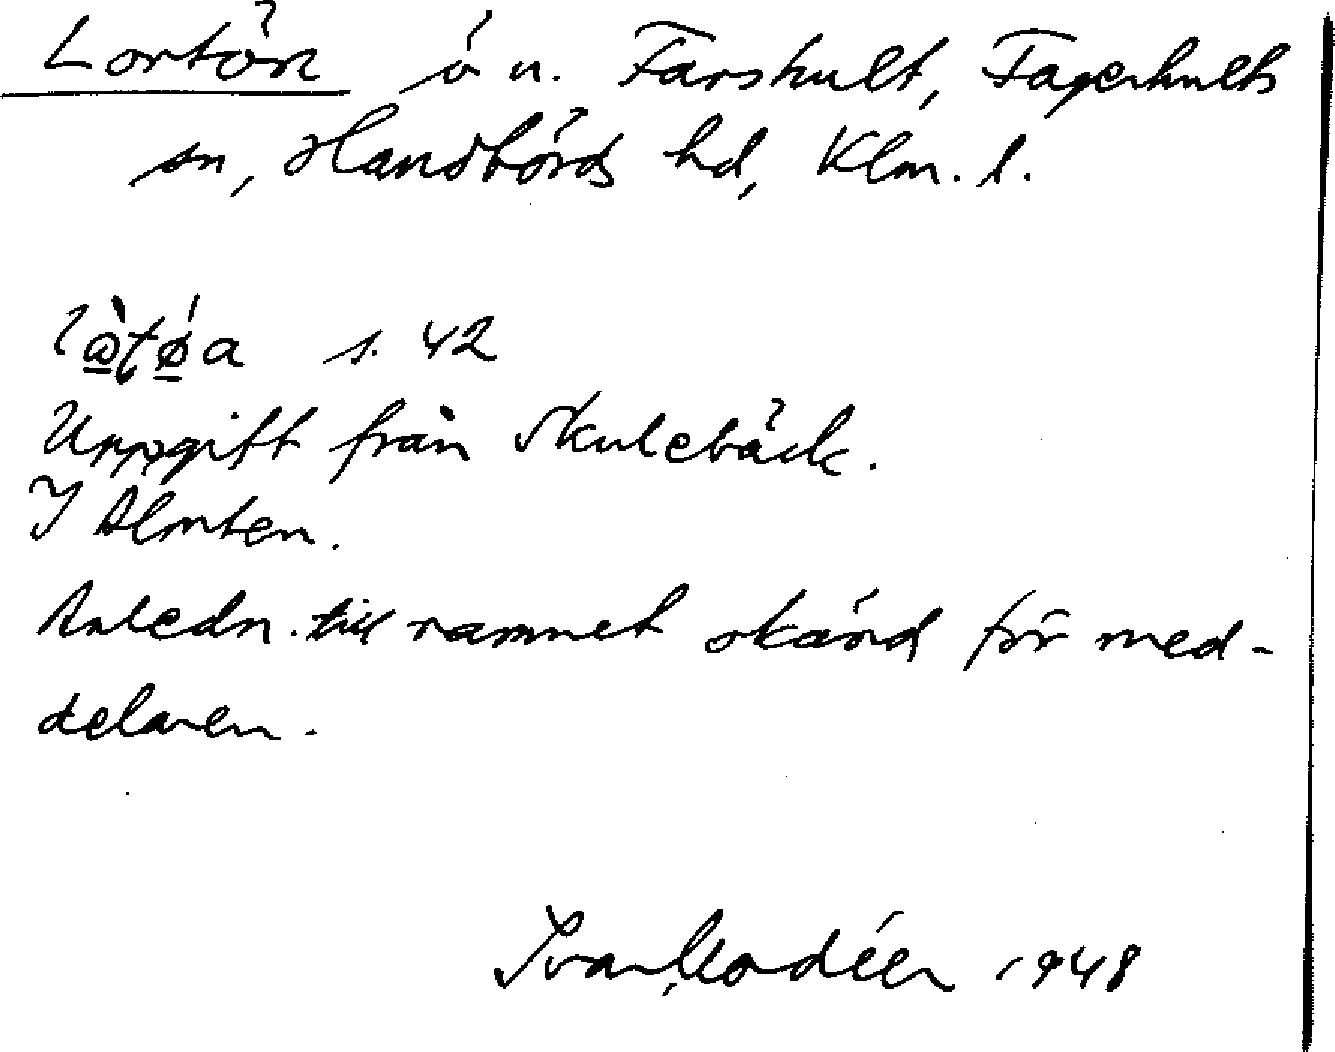 Lortön ö n. Farshult, Fagerhults
sn, Handbörds hd, Klm. l.
s. 42
Uppgift från Skulebäck.
I Älmten.
Anledn. till namnet okänd för med-
delaren.
Ivar Modéer 1948